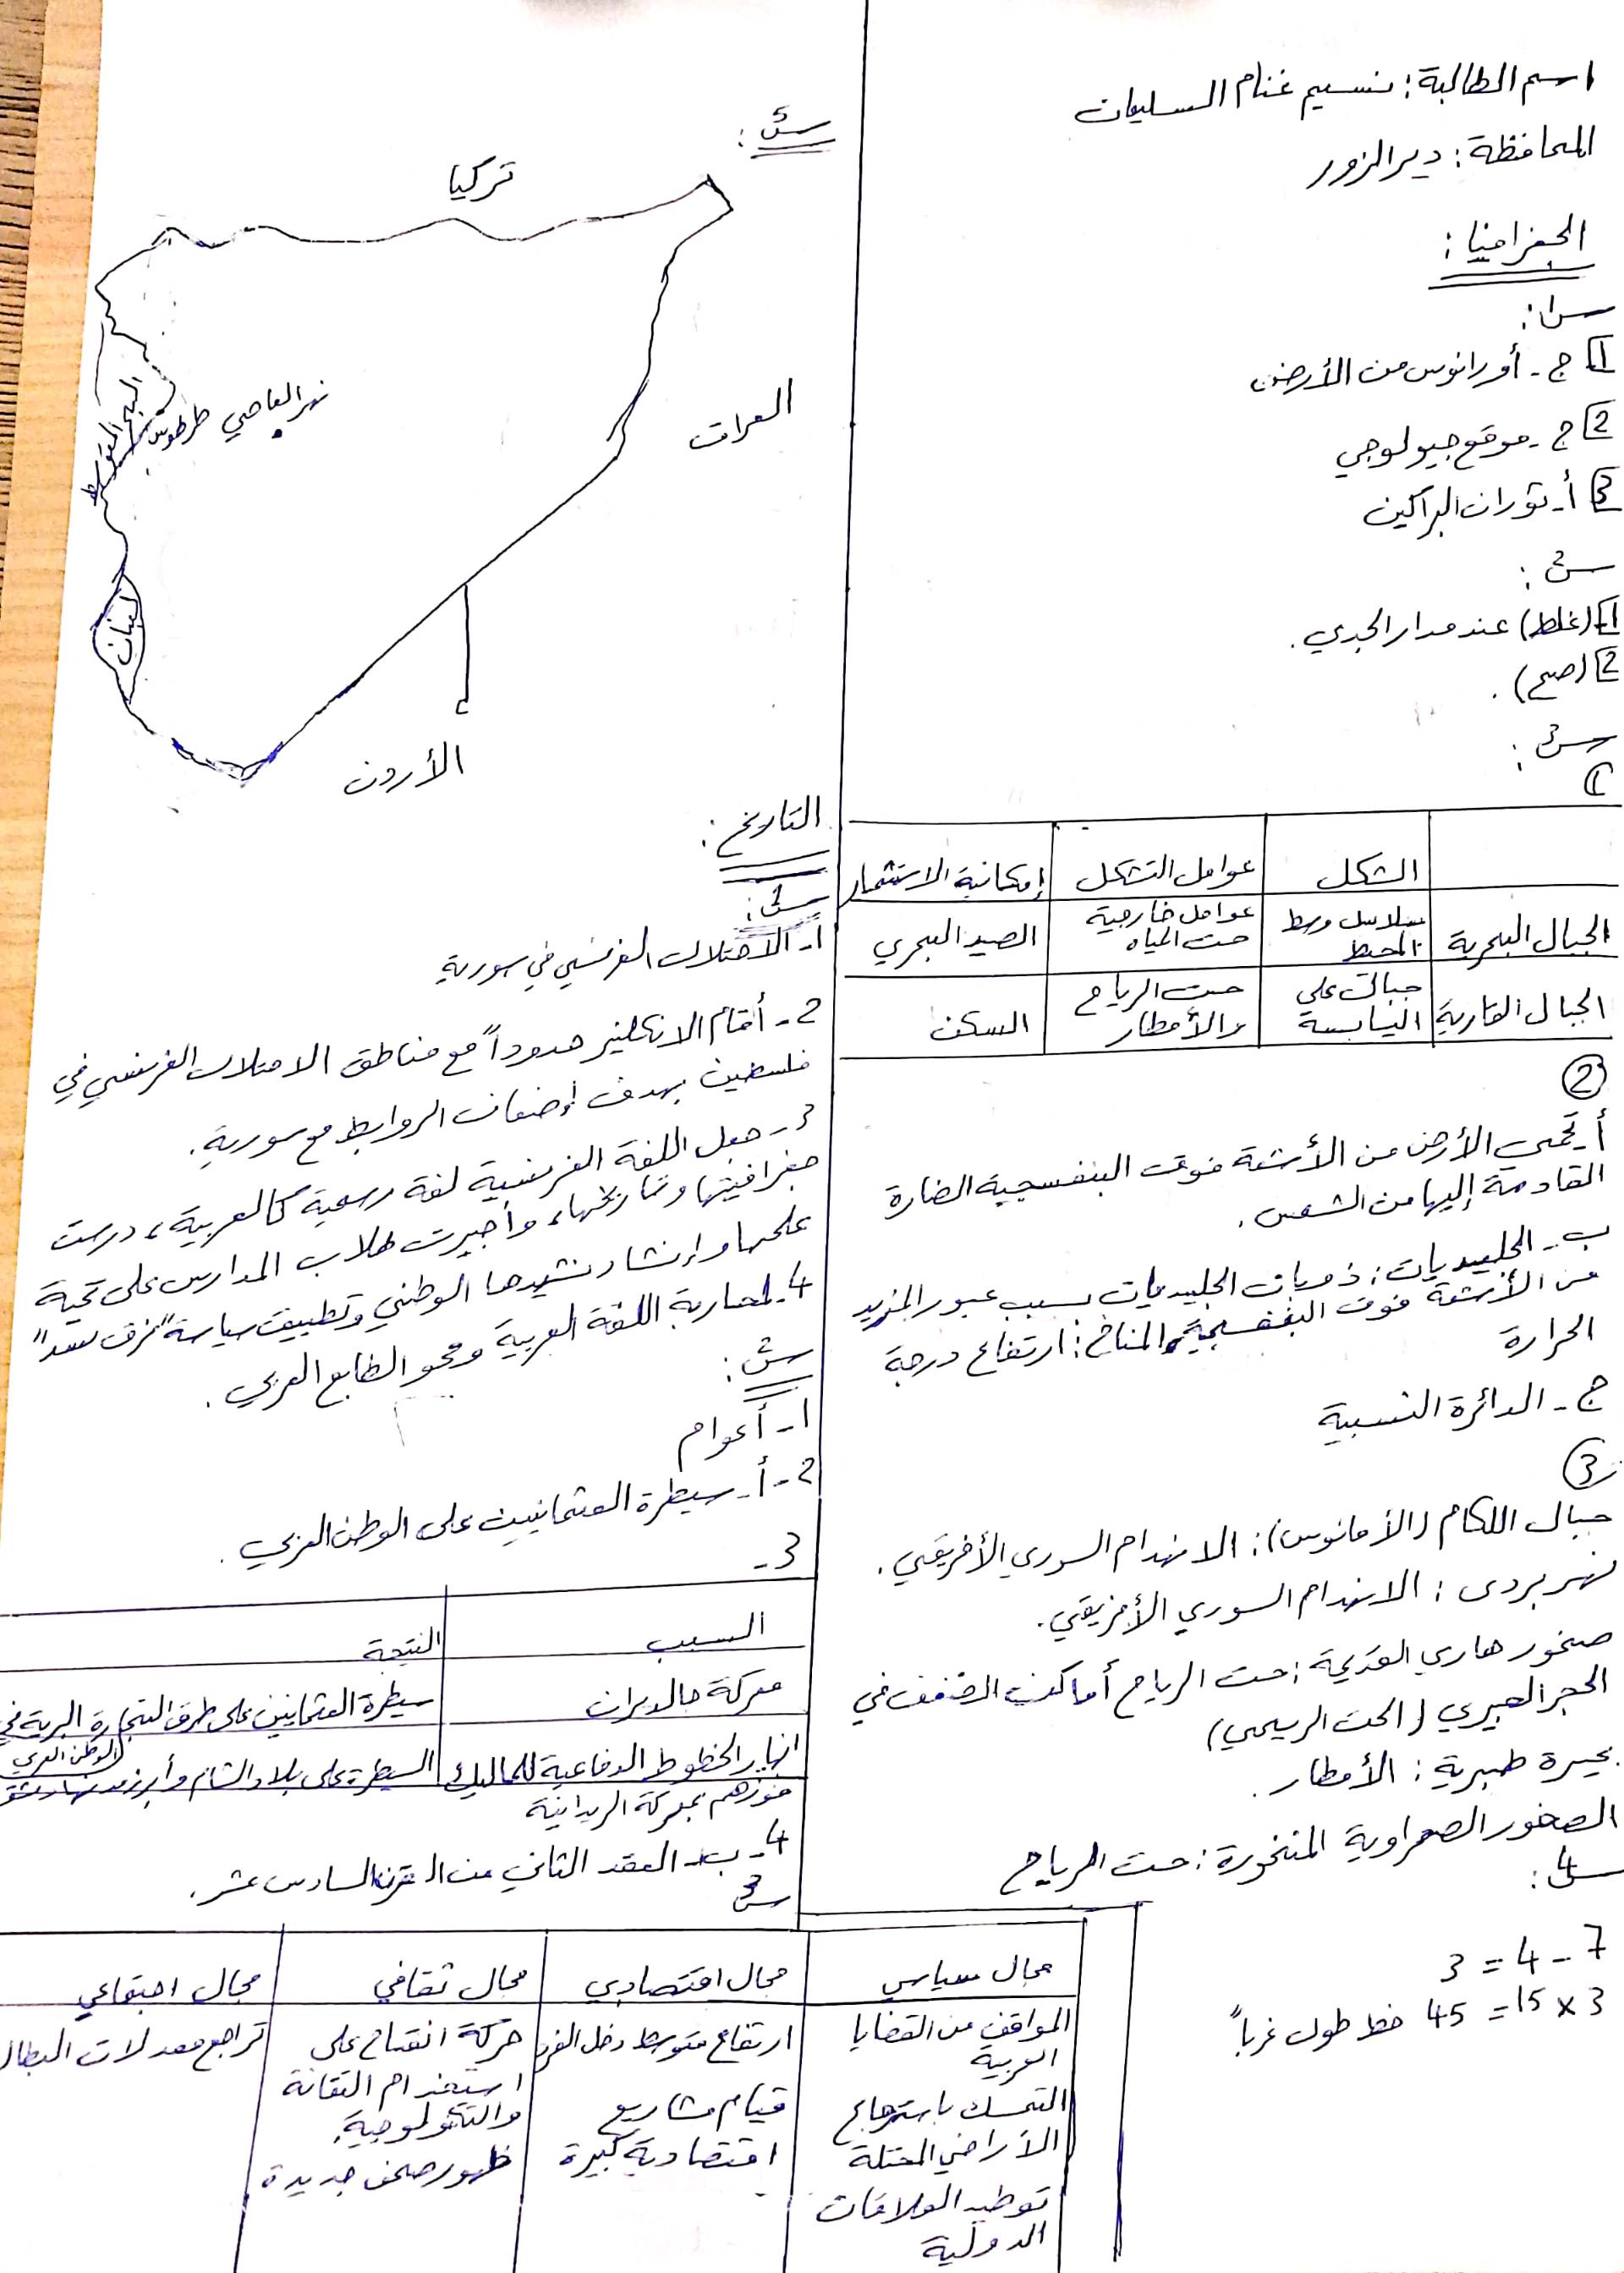 اسم الطالبة: نسيم غنام السليمان
المحافظة: دير الزور
الجغرافيا:
س1:
1 ج - أورانوس من الأرض
2 ج - موقع جيولوجي
3 أ - ثوران البراكين
س2:
1 - (غلط) عند مدار الجدي.
2 (صح).
س3:
1
الشكل | عوامل التشكل | إمكانية الاستثمار
الجبال البحرية | سلاسل وسط المحيط | عوامل خارجية حت المياه | الصيد البحري
الجبال القارية | جبال على اليابسة | حت الرياح والأمطار | السكن
2
أ - تحمي الأرض من الأشعة فوق البنفسجية الضارة
القادمة إليها من الشمس.
ب - الجليديات: ذوبان الجليديات بسبب عبور المزيد
من الأشعة فوق البنفسجية، المناخ: ارتفاع درجة
الحرارة
ج - الدائرة النسبية
3
جبال اللكام (الأمانوس): الانهدام السوري الأفريقي.
نهر بردى: الانهدام السوري الأفريقي.
صخور هاري القديمة: حت الرياح أماكن الضعف في
الحجر الجيري (الحت الريحي)
بحيرة طبرية: الأمطار.
الصخور الصحراوية المنخورة: حت الرياح
س4:
7 - 4 = 3
3 × 15 = 45 خط طول غرباً
س5:
تركيا
نهر العاصي
طرطوس
البحر المتوسط
العراق
لبنان
الأردن
التاريخ:
س1:
1- الاحتلال الفرنسي في سورية
2- أقام الانكليز حدوداً مع مناطق الاحتلال الفرنسي في
فلسطين بهدف إضعاف الروابط مع سورية.
3- جعل اللغة الفرنسية لغة رسمية كالعربية، درست
جغرافيتها وتاريخها، وأجبرت طلاب المدارس على تحية
علمها وإنشاد نشيدها الوطني وتطبيق سياسة "فرق تسد"
4- لمحاربة اللغة العربية ومحو الطابع العربي.
س2:
1- أعوام
2- أ- سيطرة العثمانيين على الوطن العربي.
3-
السبب | النتيجة
معركة جالديران | سيطرة العثمانيين على طرق التجارة البرية في
الوطن العربي
انهيار الخطوط الدفاعية للمماليك | السيطرة على بلاد الشام وأبرز مدنها دمشق
فوزهم بمعركة الريدانية
4- ب- العقد الثاني من القرن السادس عشر.
س3
مجال سياسي | مجال اقتصادي | مجال ثقافي | مجال اجتماعي
المواقف من القضايا العربية | ارتفاع متوسط دخل الفرد | حركة انفتاح على | تراجع معدلات البطال
التمسك باسترجاع الأراضي المحتلة | قيام مشاريع اقتصادية كبيرة | استخدام التقانة والتكنولوجية.
توطيد العلاقات الدولية | ظهور صحف جديدة